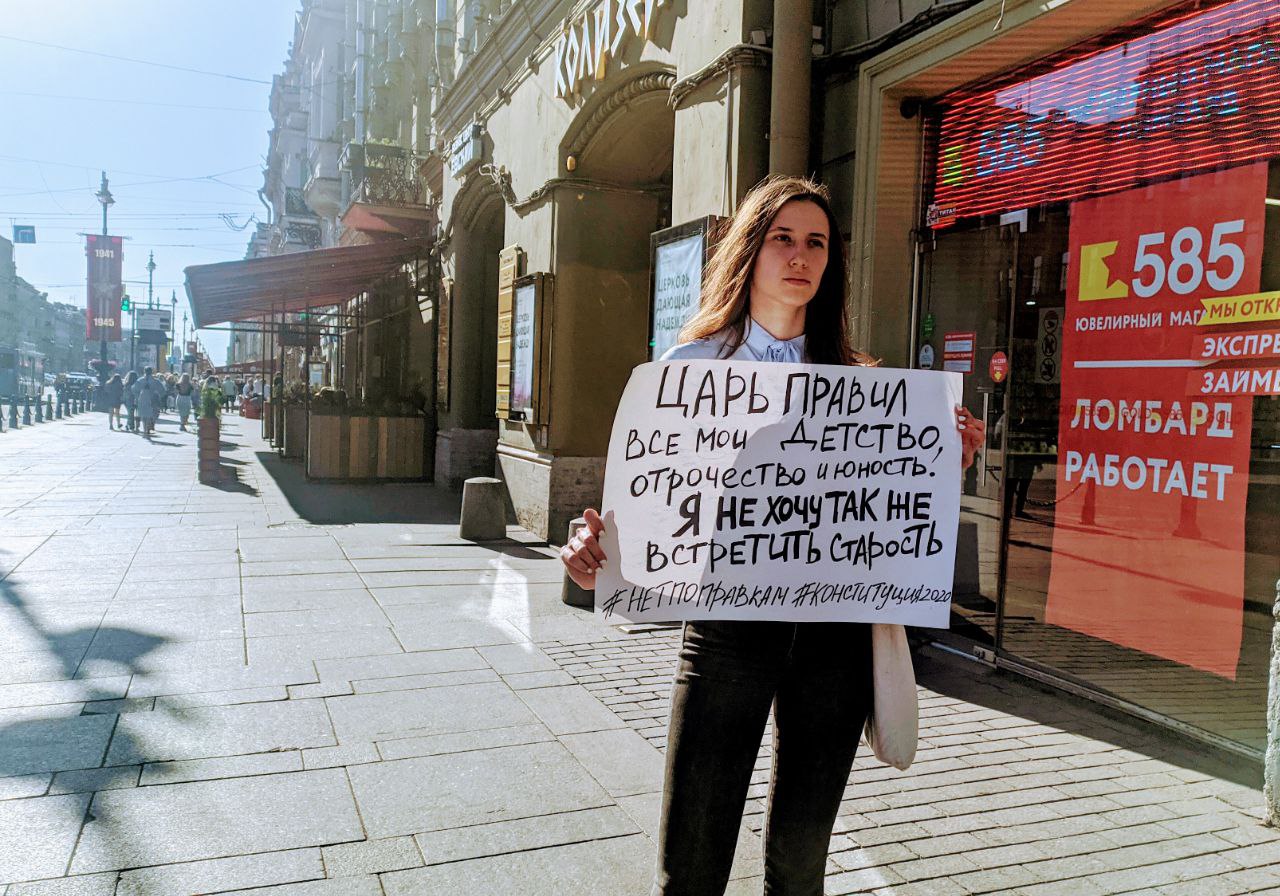 КОЛИЗЕЙ
1941
1945
ЦЕРКОВЬ
ДАЮЩАЯ
НАДЕЖДУ
ЦАРЬ ПРАВИЛ
ВСЕ МОИ ДЕТСТВО,
ОТРОЧЕСТВО И ЮНОСТЬ.
Я НЕ ХОЧУ ТАК ЖЕ
ВСТРЕТИТЬ СТАРОСТЬ
#НЕТПОПРАВКАМ #КОНСТИТУЦИЯ2020
585
585
ЮВЕЛИРНЫЙ МАГ
МЫ ОТКР
ЭКСПРЕ
ЗАЙМЫ
ЛОМБАРД
РАБОТАЕТ